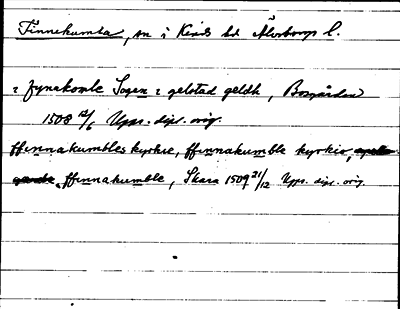 Finnekumla, sn i Kinds hd Älvsborgs l.
i fynekomle Sogen i gelstad geldh, Bosgården
1508 12/6 Upps. dipl. orig.
ffinnakumbles kyrkie, ffinnakumble kyrkio,
ffinnakumble, Skara 1509 21/12 Upps. dipl. orig.